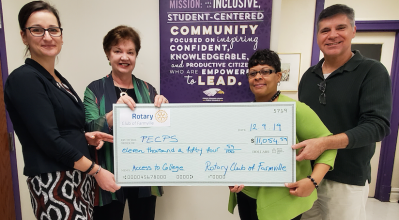 MISSION:
INCLUSIVE,
STUDENT-CENTERED
COMMUNITY
FOCUSED ON INSPIRING
CONFIDENT,
KNOWLEDGEABLE,
AND PRODUCTIVE CITIZENS
WHO ARE EMPOWERED
TO LEAD.
Rotary
3729
12.9.19
FECPS
$11,054.99
eleven thousand & fifty four 99
Access to College
Rotary Club of Farmville